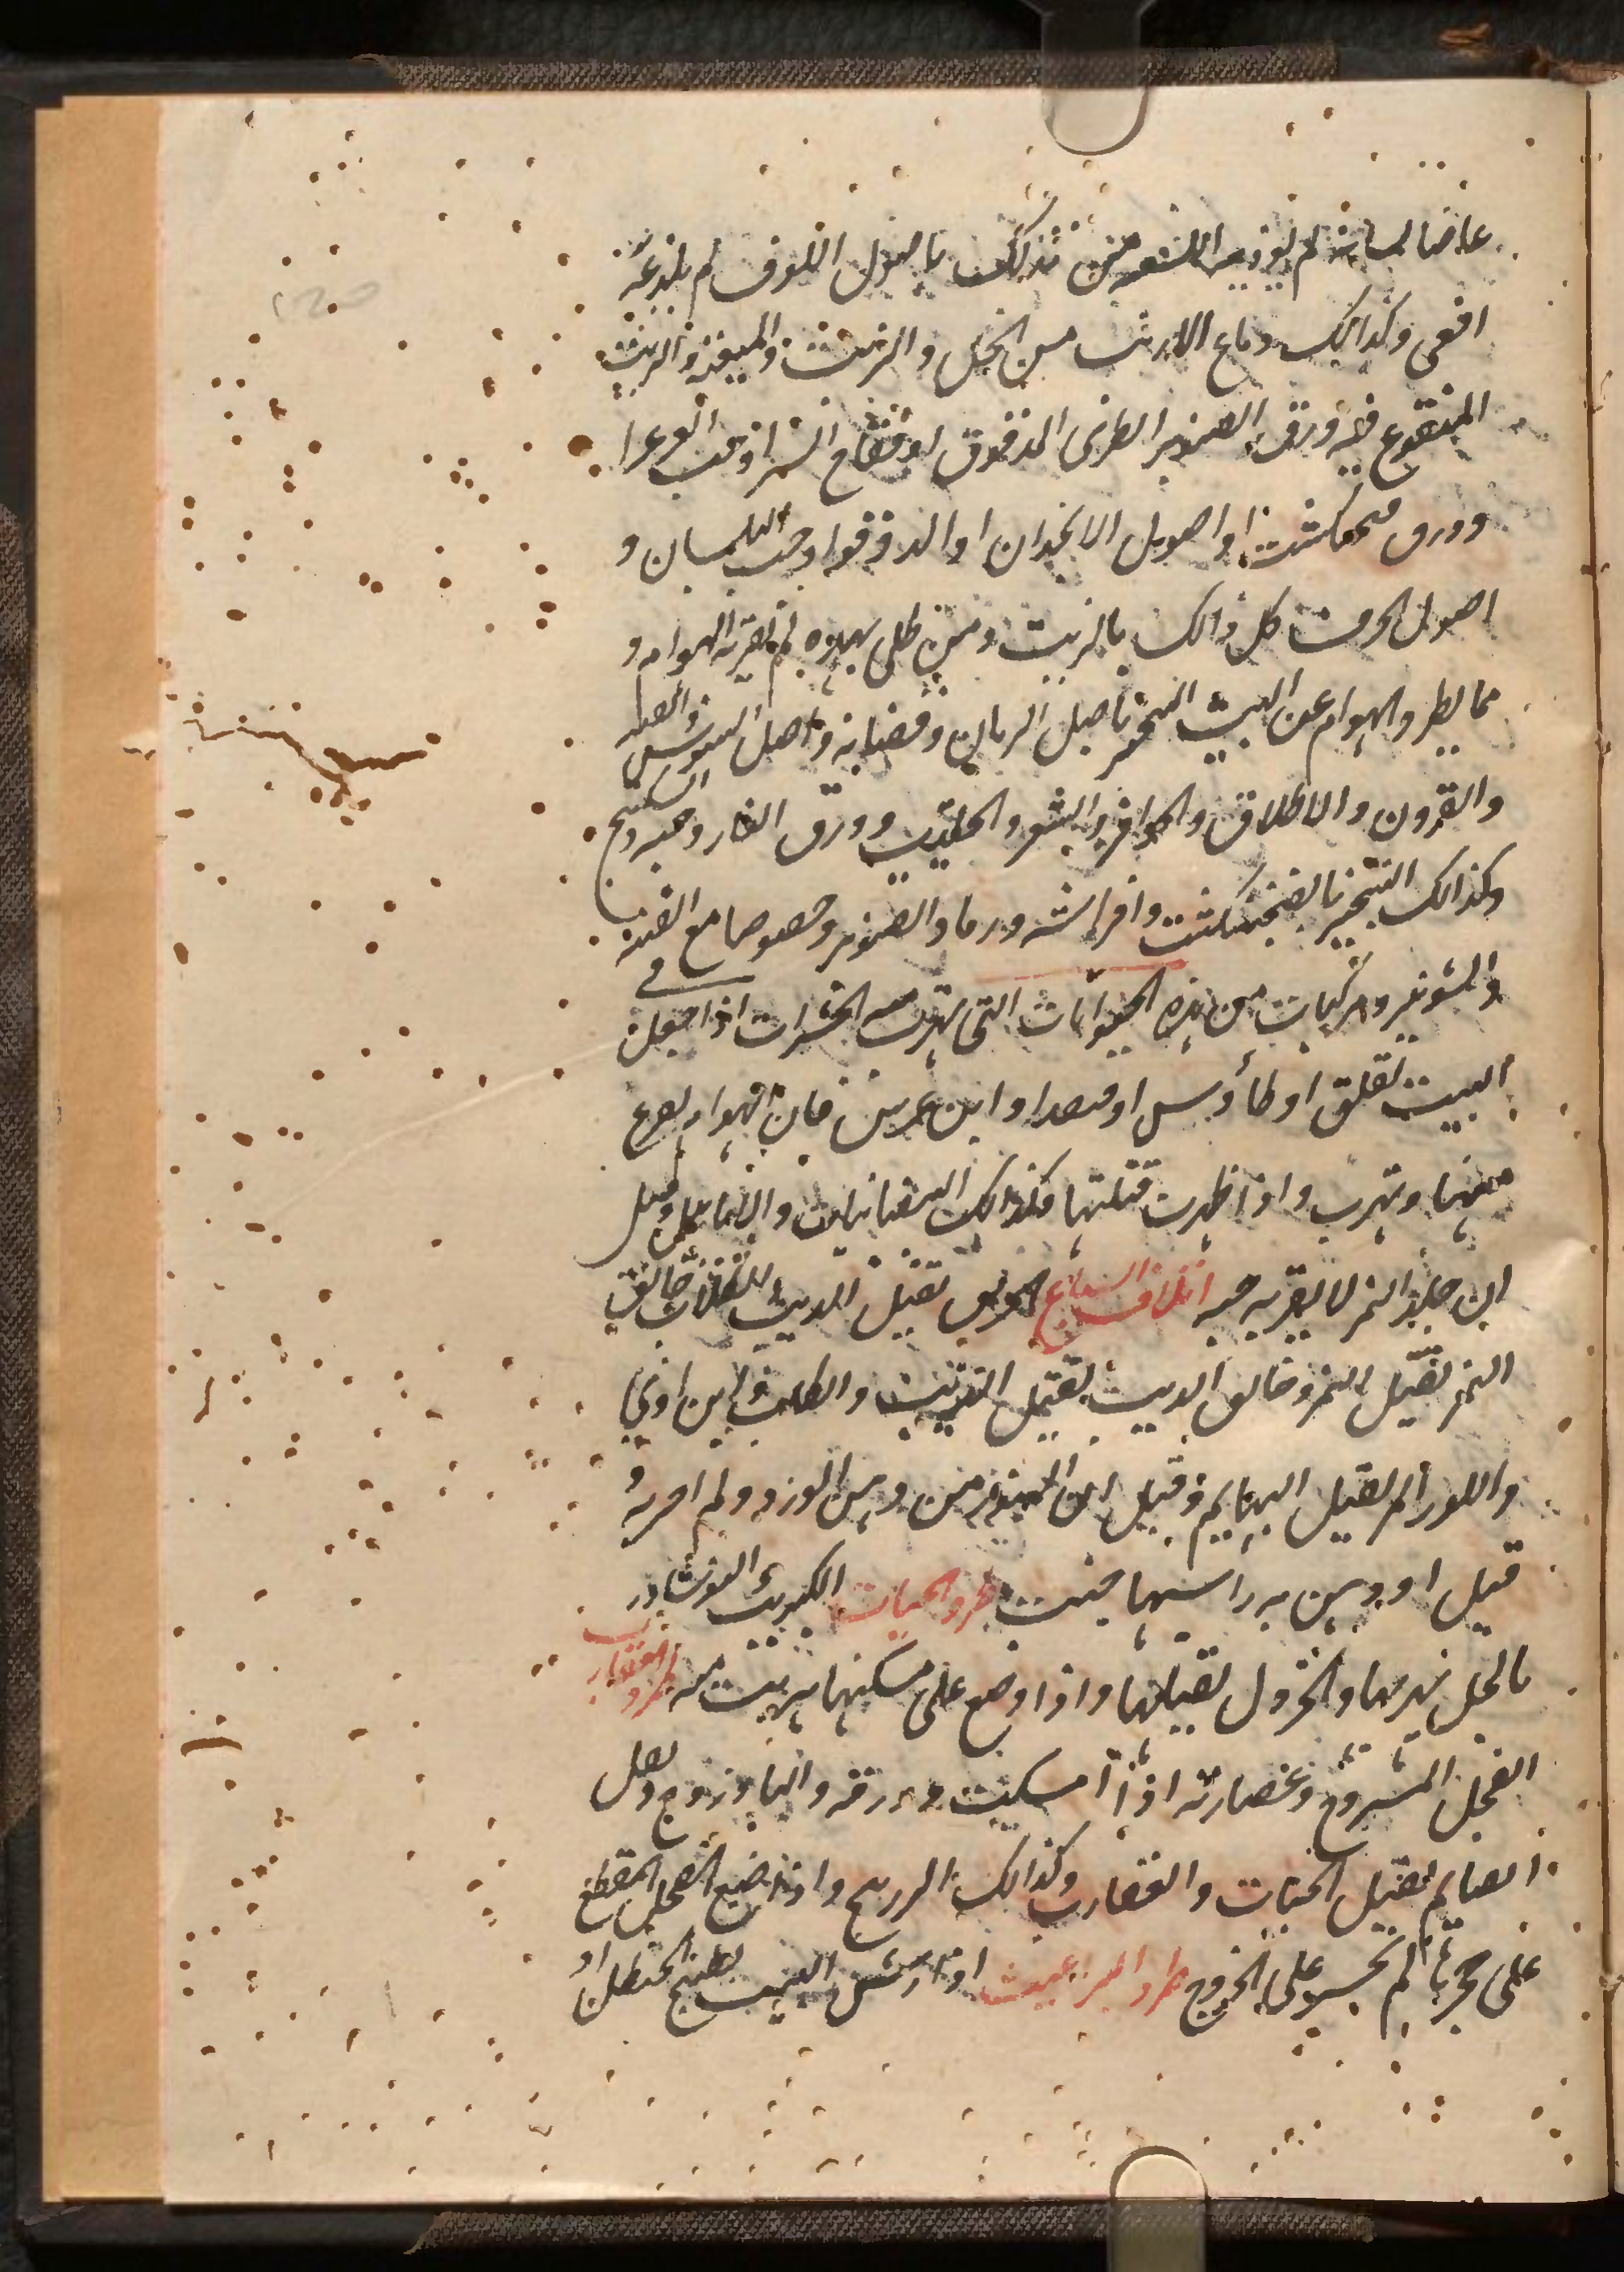 عاضا لسانه لم يوذيه اللسعه من تدلك باصول اللوف لم يلدغه
افعى وكذالك دماغ الارنب من الخل والزيت والميعة والزيت
المنقوع فيه ورق الصنوبر الطرى المدقوق او فقاح السرو حب العرعر ا
وورق فنجنكشت او اصول الانجدان او الدوقوا وحب البلسان و
اصول الحرف كل ذالك بالزيت ومن طلى بهذه لم تقربه الهوام و
مما يطرد الهوام عن البيت التبخير باصل الرمان وقضبانه واصل السوسن
والقرون والاظلاف والحوافر والشعر والحلتيت وورق الغار وحبه
وكذالك التبخير بالفنجنكشت وافراشه ورماد الصنوبر وخصوصا مع القنه
والشونيز ومركبات من هذه الحيوانات التى تهرب منه الحشرات اذا جعل فى
البيت لقلق او طاؤس او قنفدا وابن عرس فان الهوام
منها وتهرب واذا ظهرت قتلتها وكذالك والايايل وقيل
ان جلد النمر لا يقربه حيه اتلاف السباع الخربق تقتل الذيب والكلاب خانق
النمر تقتل النمر وخانق الذيب تقتل الذيب والكلب وابن اوى
واللوز المر تقتل البهايم وقيل ان من دهن الورد ولم
قيل او دهن به راسها جنت طرد الحيات الكبريت النوشادر
بالخل تهربها والخردل تقتلها واذا وضع على مسكنها هربت منه طرد العقارب
الفجل المشدوخ وعصارته اذا مسكت وورقه والباذروج وتفل
الصايم تقتل الحيات والعقارب وكذالك الزرنيخ واذا وضع الفجل المقطع
على حجرها لم تجسر على الخروج طرد البراغيث اذا رش البيت بطبيخ الحنظل او